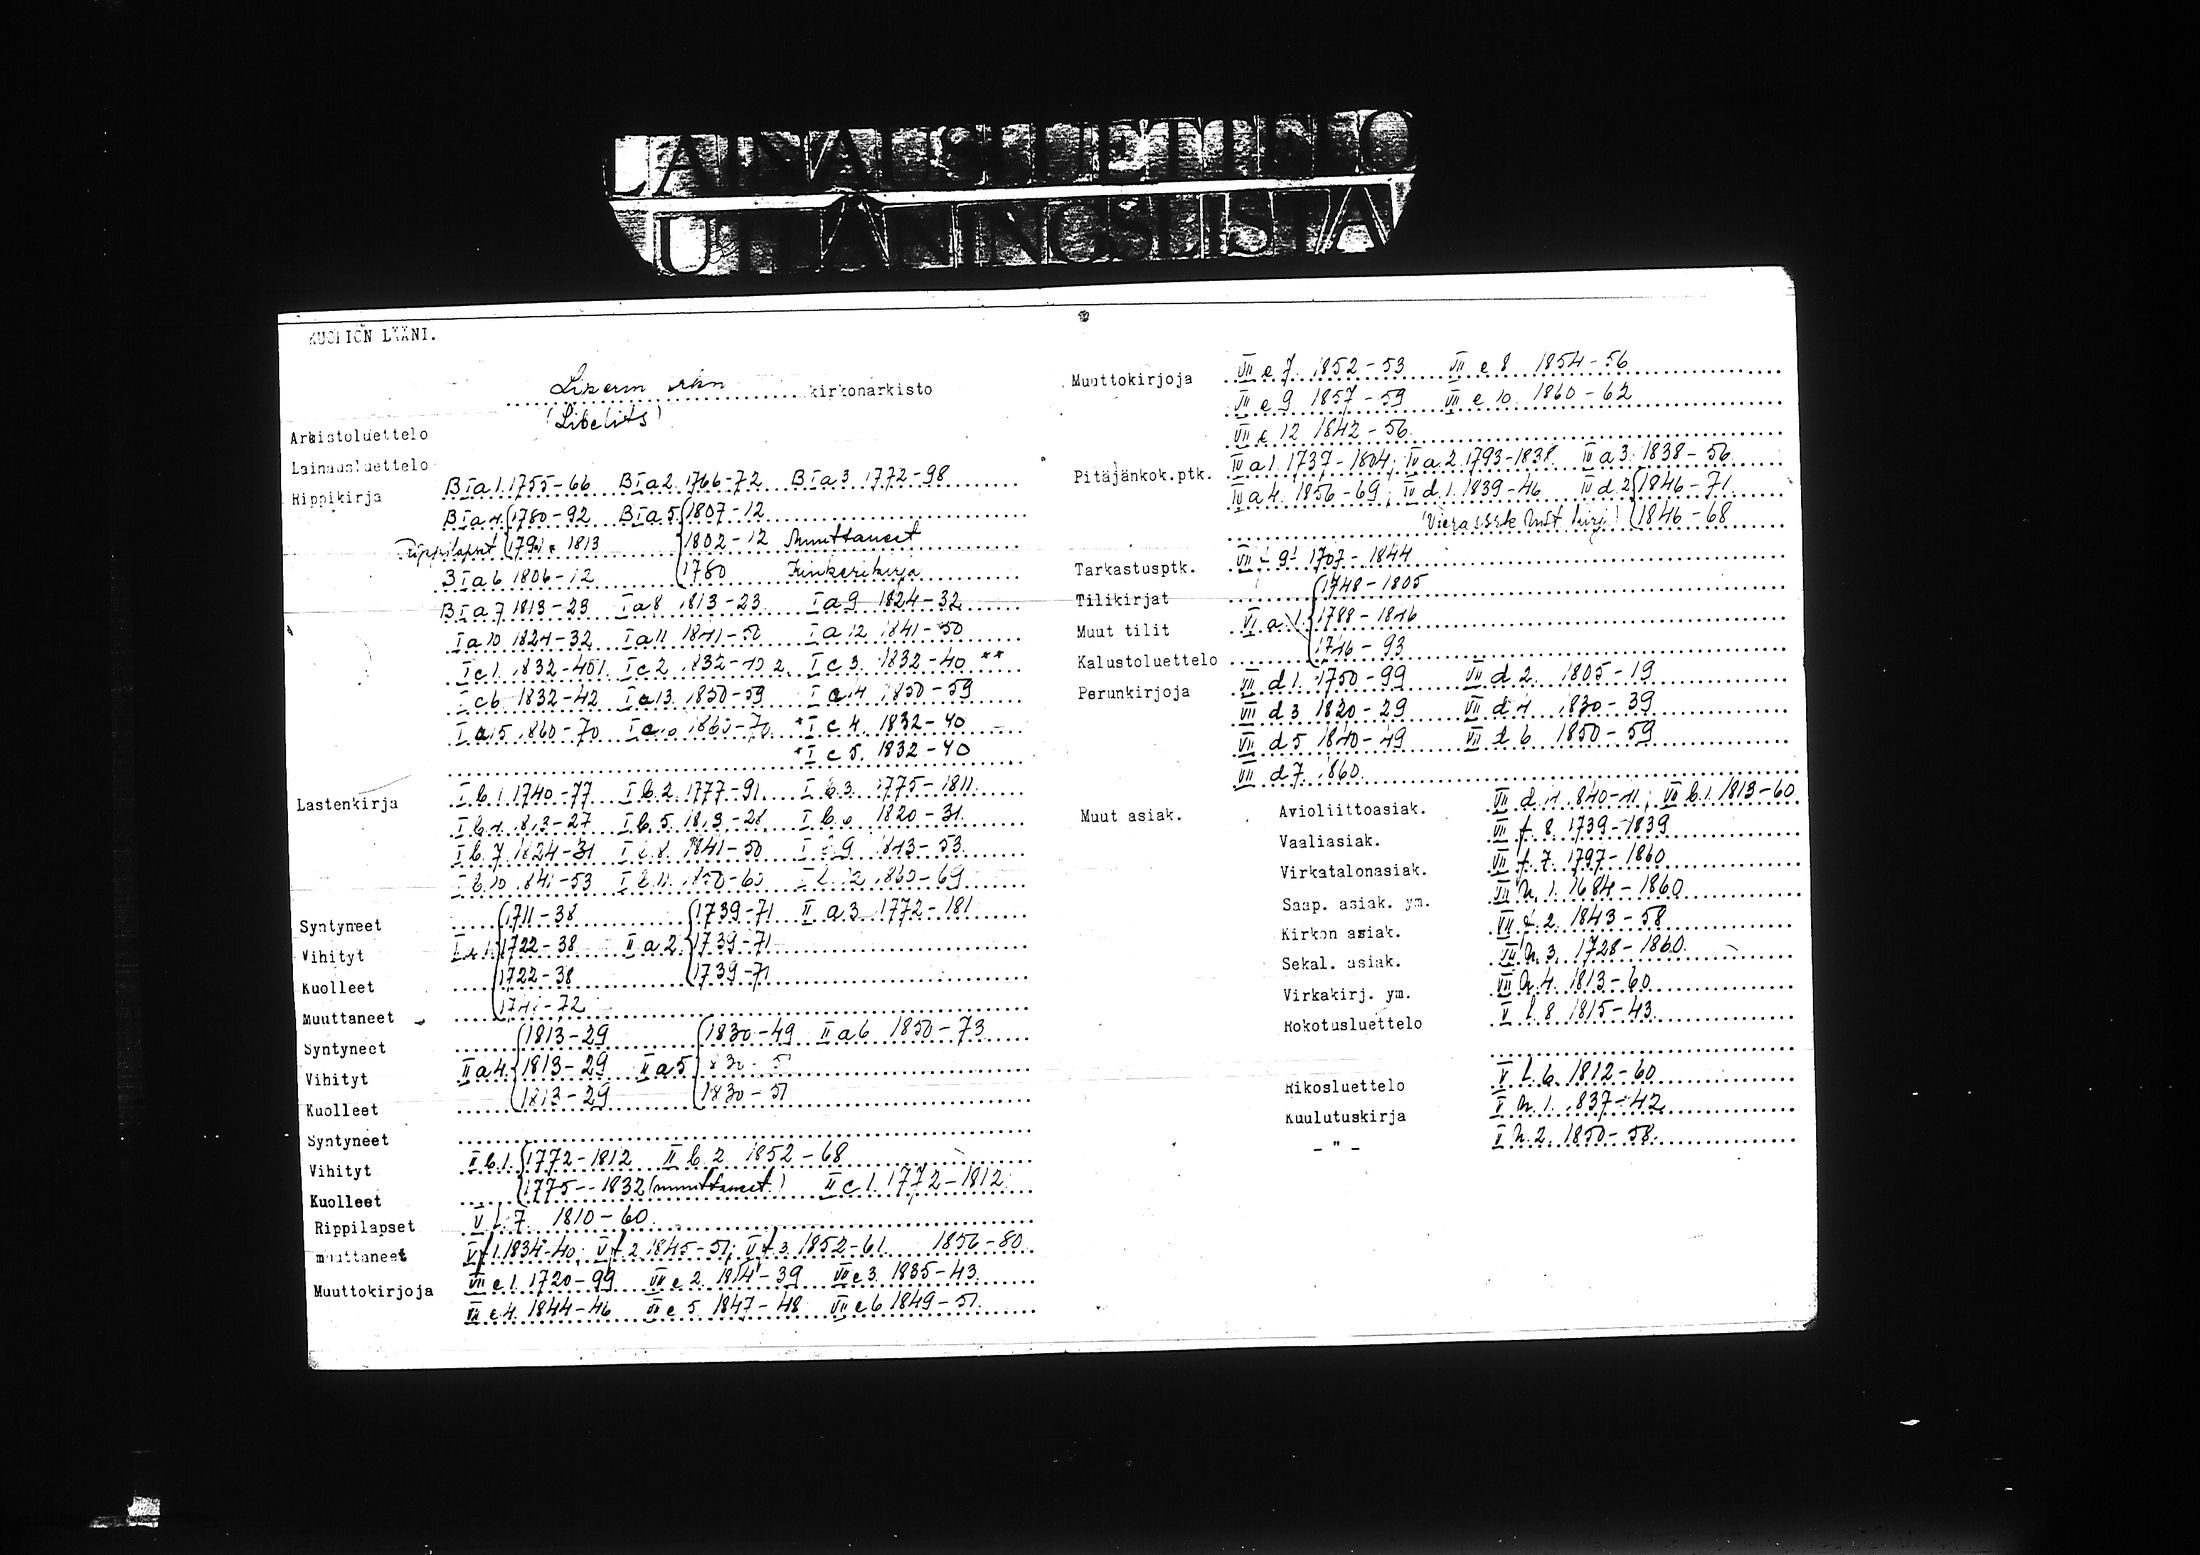 LAINAUSLUETTELO
UTLÅNINGSLISTA
KUOPION LÄÄNI.
kirkonarkisto
(Libelits)
Arkistoluettelo
Lainausluettelo
Rippikirja B I a 1. 1755-66 B I a 2. 1766-72 B I a 3. 1772-98
B I a 4. 1780-92 B I a 5. 1807-12
Rippilapset 1813 1802-12 Muuttaneet
B I a 6 1806-12 1780 Finkerikirja
B I a 7 1813-23 I a 8 1813-23 I a 9 1824-32
I a 10 1824-32 I a 11 1841-50 I a 12 1841-50
I c 1. 1832-40 I c 2. 1832-40 I c 3. 1832-40 **
I c 6 1832-42 I a 13. 1850-59 I a 14 1850-59
I a 15 1860-70 1860-70 *I c 4. 1832-40
*I c 5. 1832-40
Lastenkirja I b. 1. 1740-77 I b. 2. 1777-91 I b. 3. 1775-1811
I b. 4. 1813-27 I b. 5. 1813-28 I b. 6 1820-31
I b. 7. 1824-31 I b. 8. 1841-50 I b. 9 1843-53
I b. 10 1841-53 I b. 11. 1850-60 I b. 12 1860-69
Syntyneet 1711-38 1739-71 II a. 3. 1772-181
Vihityt 1722-38 II a 2. 1739-71
Kuolleet 1722-38 1739-71
Muuttaneet 1741-72
Syntyneet 1813-29 1830-49 II a 6 1850-73
Vihityt II a 4. 1813-29 II a 5 1830-51
Kuolleet 1813-29 1830-51
Syntyneet
Vihityt II b. 1. 1772-1812 II b. 2. 1852-68
Kuolleet 1775--1832 (muuttaneet) II c 1. 1772-1812
Rippilapset V l. 7. 1810-60
muuttaneet V f 1. 1834-40; V f. 2. 1845-51; V f. 3. 1852-61. 1856-80
Muuttokirjoja VII e 1. 1720-99 VII e 2. 1814-39 VII e 3. 1835-43
VII e 4. 1844-46 VII e 5. 1847-48 VII e 6 1849-51
Muuttokirjoja VII e 7. 1852-53 VII e 8 1854-56
VII e 9 1857-59 VII e 10. 1860-62
VII e 12 1842-56
Pitäjänkok.ptk. IV a 1. 1737-1804; IV a. 2. 1793-1838 IV a 3. 1838-56
IV a 4. 1856-69; IV d. 1. 1839-46 IV d. 2 1846-71
1846-68
Tarkastusptk. 1707-1844
Tilikirjat 1748-1805
Muut tilit VI a. 1. 1788-1846
Kalustoluettelo 1746-93
Perunkirjoja VII d 1. 1750-99 VII d 2. 1805-19
VII d 3 1820-29 VII d 4 1830-39
VII d 5 1840-49 VII d 6 1850-59
VII d 7. 1860
Muut asiak. Avioliittoasiak. VII d. 4. 1840-41; VII b. 1. 1813-60
Vaaliasiak. VII f. 8. 1739-1839
Virkatalonasiak. VII f. 7. 1797-1860
Saap. asiak. ym. VII h. 1. 1684-1860
Kirkon asiak. 2. 1843-58
Sekal. asiak. VII h. 3. 1728-1860
Virkakirj. ym. VII h. 4. 1813-60
Rokotusluettelo V l. 8. 1815-43
Rikosluettelo V l. 6. 1812-60
Kuulutuskirja V h. 1. 1837-42
- " - V h. 2. 1850-58